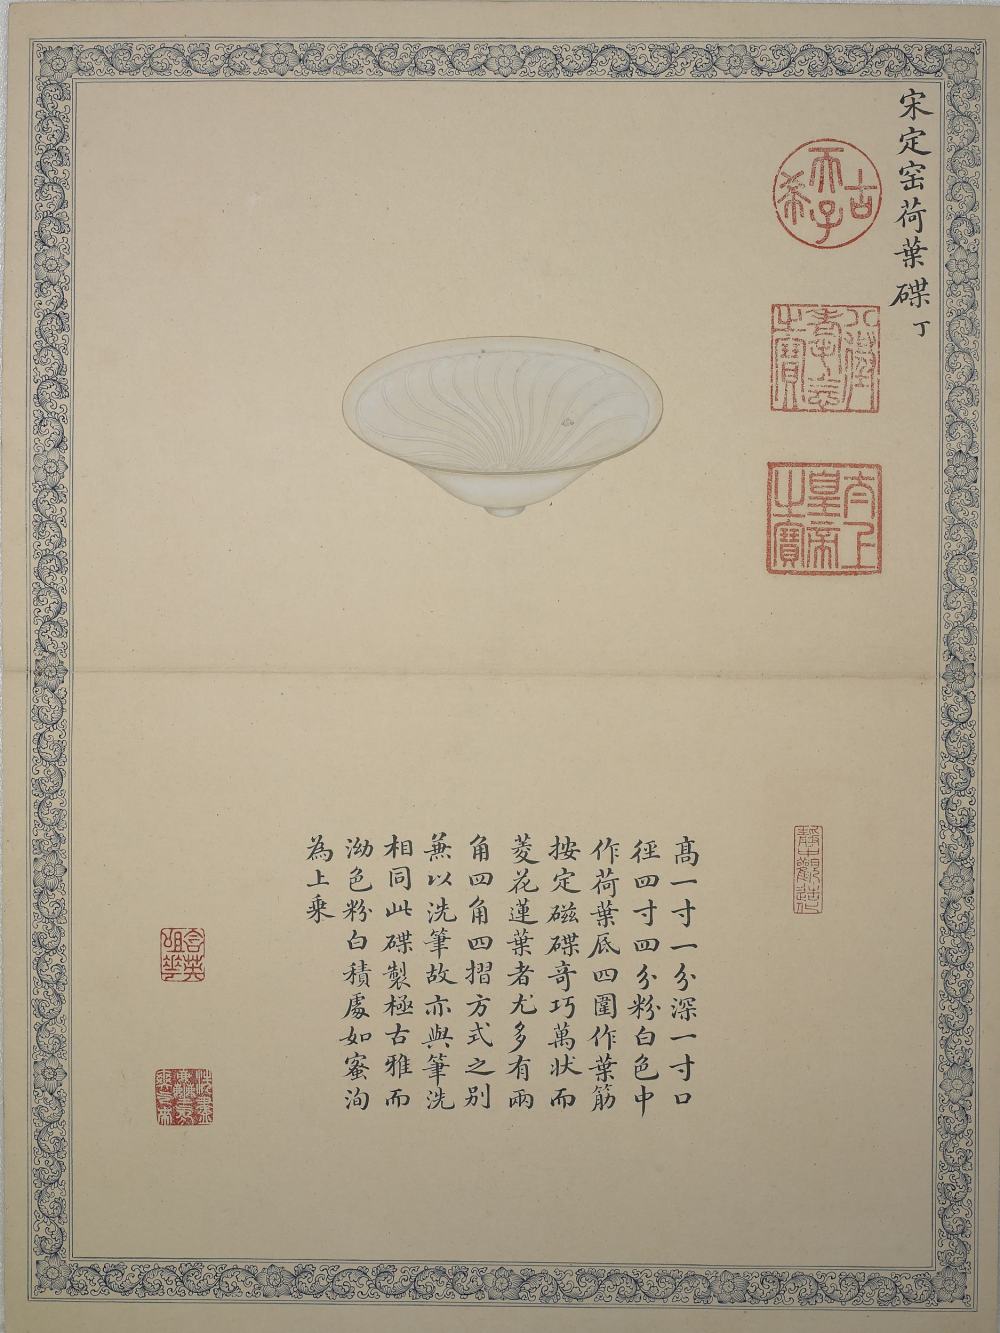 宋定窑荷葉碟丁
古希天子
八徵耄念之寶
太上皇帝之寶
靜中觀造化
高一寸一分深一寸口
徑四寸四分粉白色中
作荷葉底四圍作葉筋
按定磁碟奇巧萬狀而
菱花蓮葉者尤多有兩
角四角四摺方式之别
蕪以洗筆故亦與筆洗
相同此碟製極古雅而
泑色粉白積處如蜜洵
為上乘
含英咀華